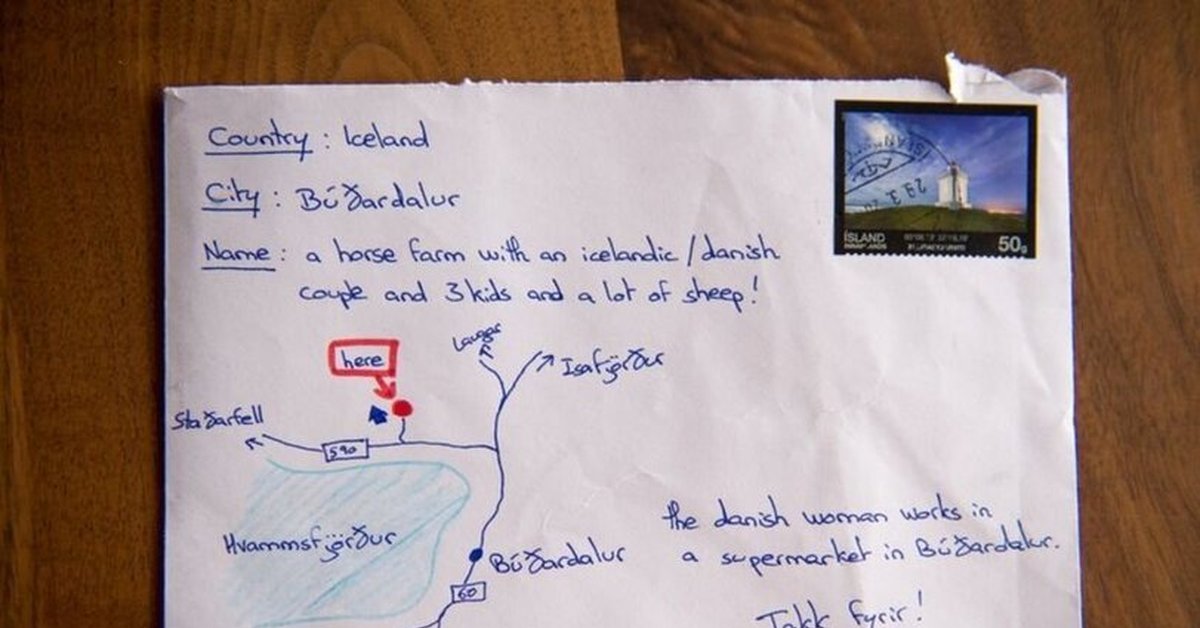 Country : Iceland
City : Búðardalur
Name : a horse farm with an icelandic / danish
couple and 3 kids and a lot of sheep!
ÍSLAND
50g
here
Laugar
Isafjörður
Staðarfell
590
Hvammsfjörður
Búðardalur
60
the danish woman works in
a supermarket in Búðardalur.
Takk fyrir!